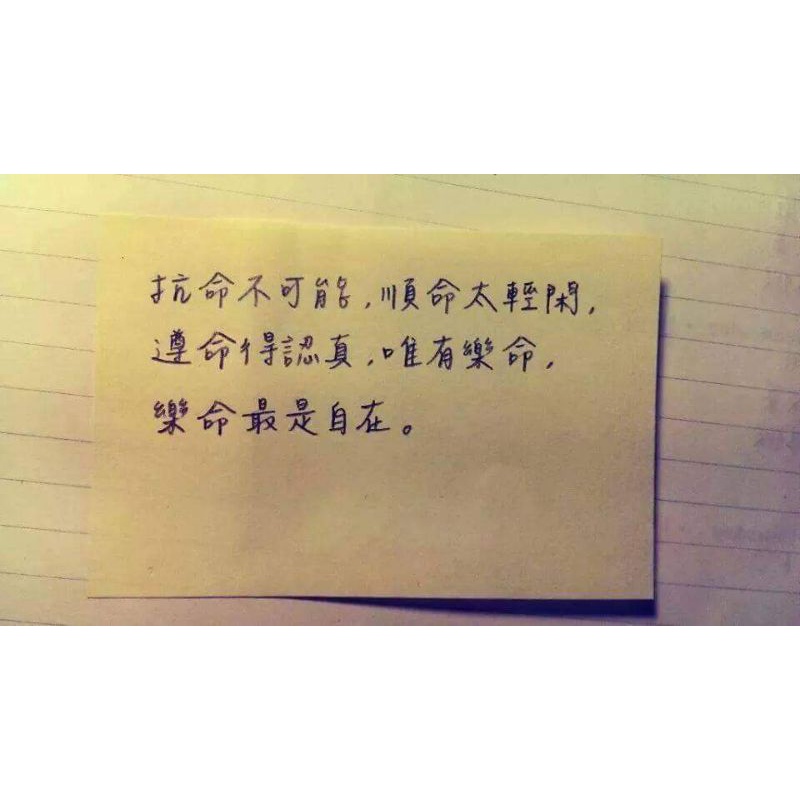 抗命不可能,順命太輕閑,
遵命得認真,唯有樂命,
樂命最是自在。